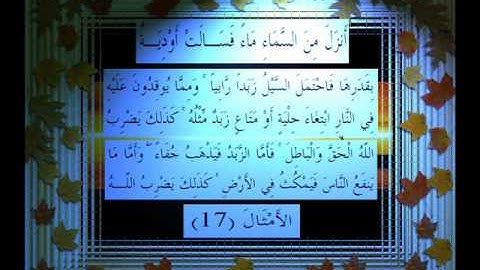 أَنزَلَ مِنَ السَّمَاءِ مَاءً فَسَـالَتْ أَوْدِيَـةٌ
بِقَدَرِهَا فَاحْتَمَلَ السَّيْلُ زَبَدًا رَّابِيًا ۚ وَمِمَّا يُوقِدُونَ عَلَيْهِ
فِي النَّارِ ابْتِغَاءَ حِلْيَةٍ أَوْ مَتَاعٍ زَبَدٌ مِّثْلُهُ ۚ كَذَٰلِكَ يَضْرِبُ
اللَّهُ الْحَقَّ وَالْبَاطِلَ ۚ فَأَمَّا الزَّبَدُ فَيَذْهَبُ جُفَاءً ۖ وَأَمَّا مَا
يَنفَعُ النَّاسَ فَيَمْكُثُ فِي الْأَرْضِ ۚ كَذَٰلِكَ يَضْرِبُ اللَّـهُ
الْأَمْثَالَ (17)